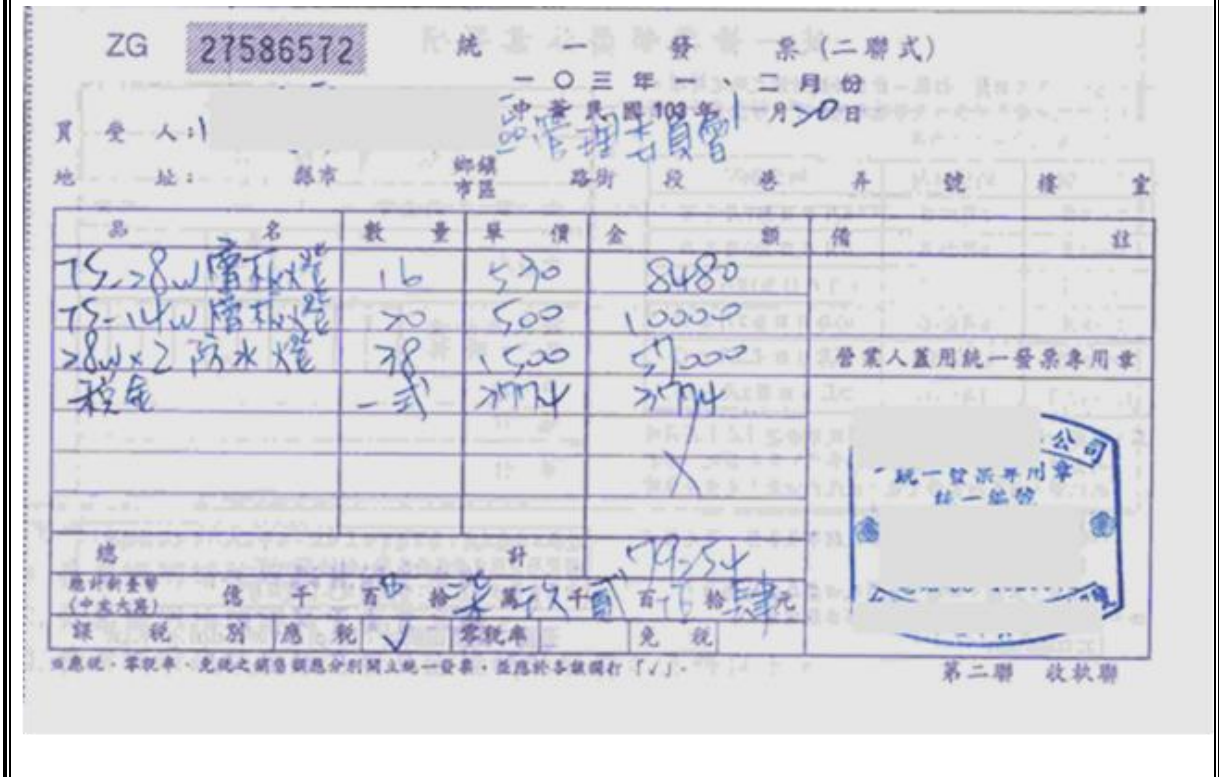 ZG 27586572 統一發票(二聯式)
一〇三年一、二月份
中華民國103年1月20日
買受人:
區管理委員會
地址: 縣市 鄉鎮市區 路街 段 巷 弄 號 樓 室
品名 數量 單價 金額 備註
T5-28W層板燈 16 530 8480
T5-14W層板燈 20 500 10000
28W×2防水燈 38 1500 57000
營業人蓋用統一發票專用章
稅金 一式 3774 3774
公司
統一發票專用章
統一編號
總計 79254
總計新臺幣(中文大寫) 億 千 百 拾柒萬玖千貳百伍拾肆元
課稅別 應稅 ✓ 零稅率 免稅
※應稅、零稅率、免稅之銷售額應分別開立統一發票,並應於各該欄打「✓」。
第二聯 收執聯